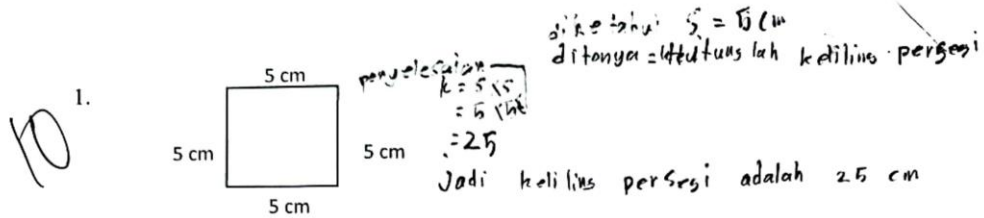 diketahui S = 5 cm
ditanya = Hitunglah keliling persegi
10
1.
5 cm
5 cm
5 cm
5 cm
penyelesaian
k = 5 x 5
= 5 x
= 25
Jadi keliling persegi adalah 25 cm